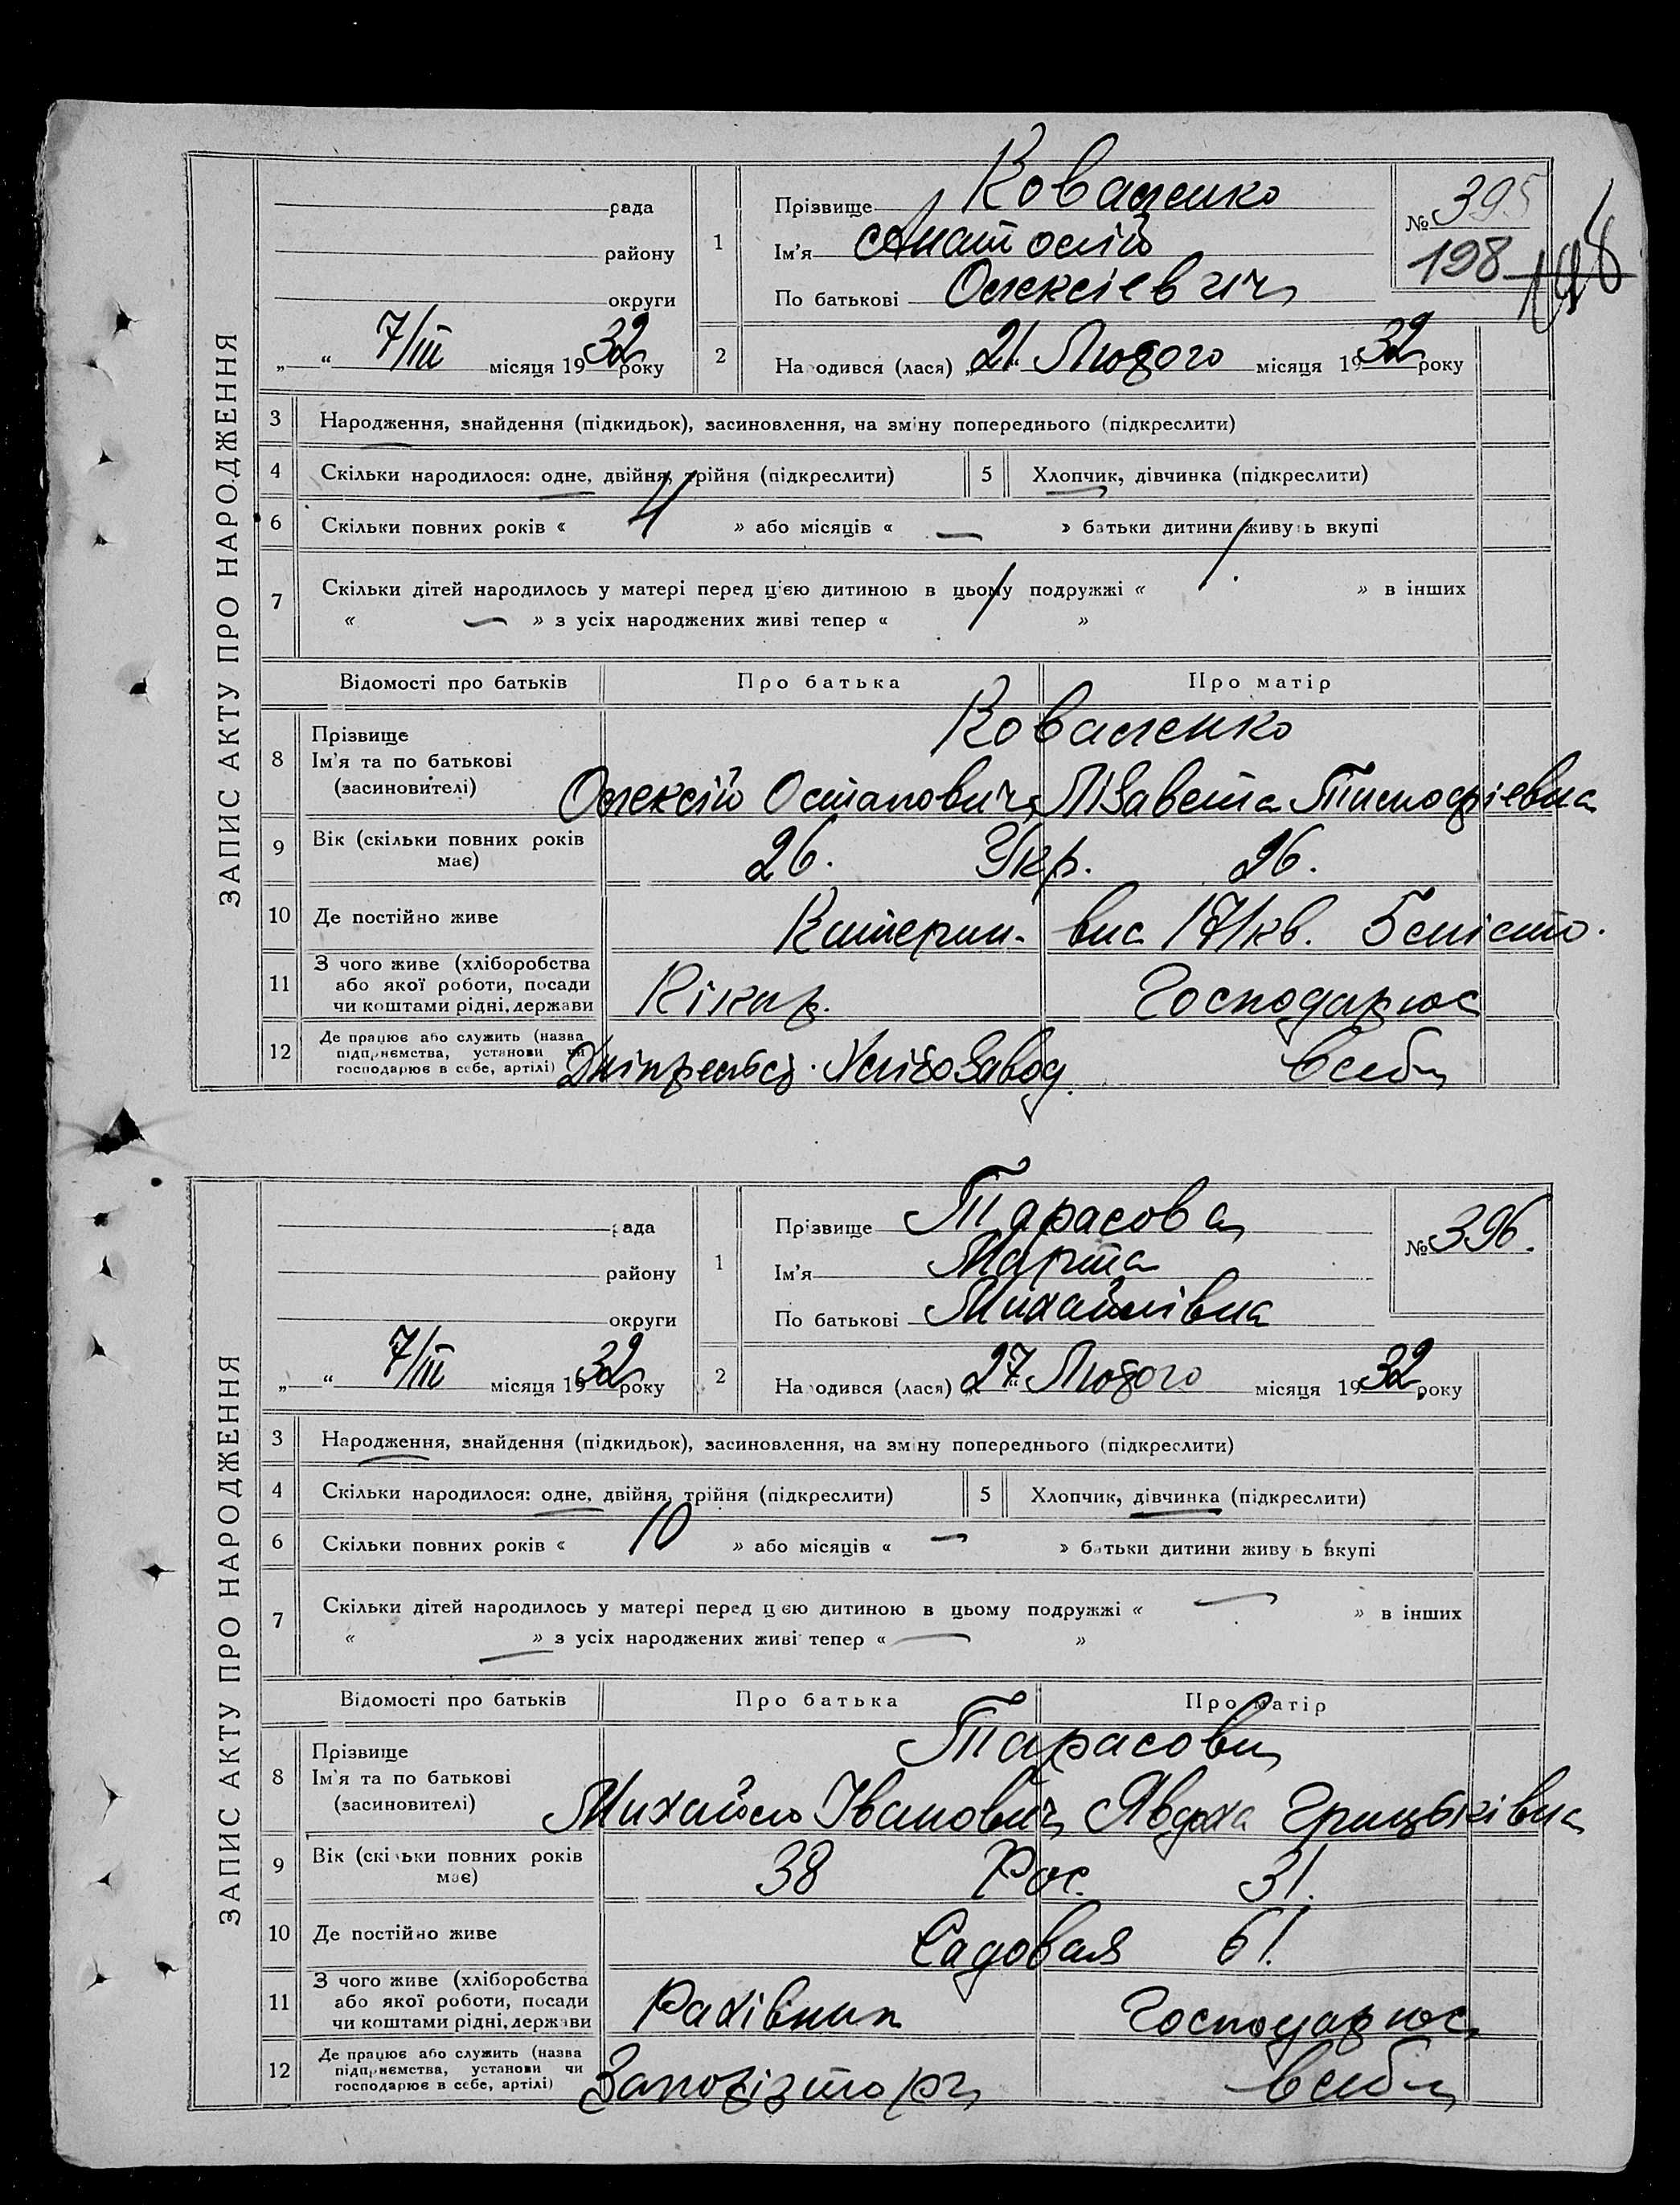 ЗАПИС АКТУ ПРО НАРОДЖЕННЯ
рада
району
округи
„ “ 7/III місяця 1932 року
1
Прізвище Коваленко
Ім'я Анатолій
По батькові Олексієвич
№ 395
198
198
2 Народився (лася) „21“ Лютого місяця 1932 року
3 Народження, знайдення (підкидьок), засиновлення, на зміну попереднього (підкреслити)
4 Скільки народилося: одне, двійня, трійня (підкреслити) 5 Хлопчик, дівчинка (підкреслити)
6 Скільки повних років « 4 » або місяців « — » батьки дитини живуть вкупі
7 Скільки дітей народилось у матері перед цією дитиною в цьому подружжі « 1. » в інших
« — » з усіх народжених живі тепер « 1 »
Відомості про батьків Про батька Про матір
8 Прізвище Коваленко
Ім'я та по батькові
(засновителі) Олексій Остапович Лізавета Тимофієвна
9 Вік (скільки повних років має) 26. Укр. 26.
10 Де постійно живе 17/кв.
11 З чого живе (хліборобства або якої роботи, посади чи коштами рідні, держави Господарює
12 Де працює або служить (назва підприємства, установи чи господарює в себе, артілі) Хлібозавод. в себе
ЗАПИС АКТУ ПРО НАРОДЖЕННЯ
рада
району
округи
„ “ 7/III місяця 1932 року
1
Прізвище Тарасова
Ім'я Марта
По батькові Михайлівна
№ 396.
2 Народився (лася) „27“ Лютого місяця 1932 року
3 Народження, знайдення (підкидьок), засиновлення, на зміну попереднього (підкреслити)
4 Скільки народилося: одне, двійня, трійня (підкреслити) 5 Хлопчик, дівчинка (підкреслити)
6 Скільки повних років « 10 » або місяців « — » батьки дитини живуть вкупі
7 Скільки дітей народилось у матері перед цією дитиною в цьому подружжі « — » в інших
« — » з усіх народжених живі тепер « — »
Відомості про батьків Про батька Про матір
8 Прізвище Тарасови
Ім'я та по батькові
(засиновителі) Михайло Іванович Явдоха Грицьківна
9 Вік (скільки повних років має) 38 Рос. 31.
10 Де постійно живе Садовая 61.
11 З чого живе (хліборобства або якої роботи, посади чи коштами рідні, держави Рахівник Господарює
12 Де працює або служить (назва підприємства, установи чи господарює в себе, артілі) в себе